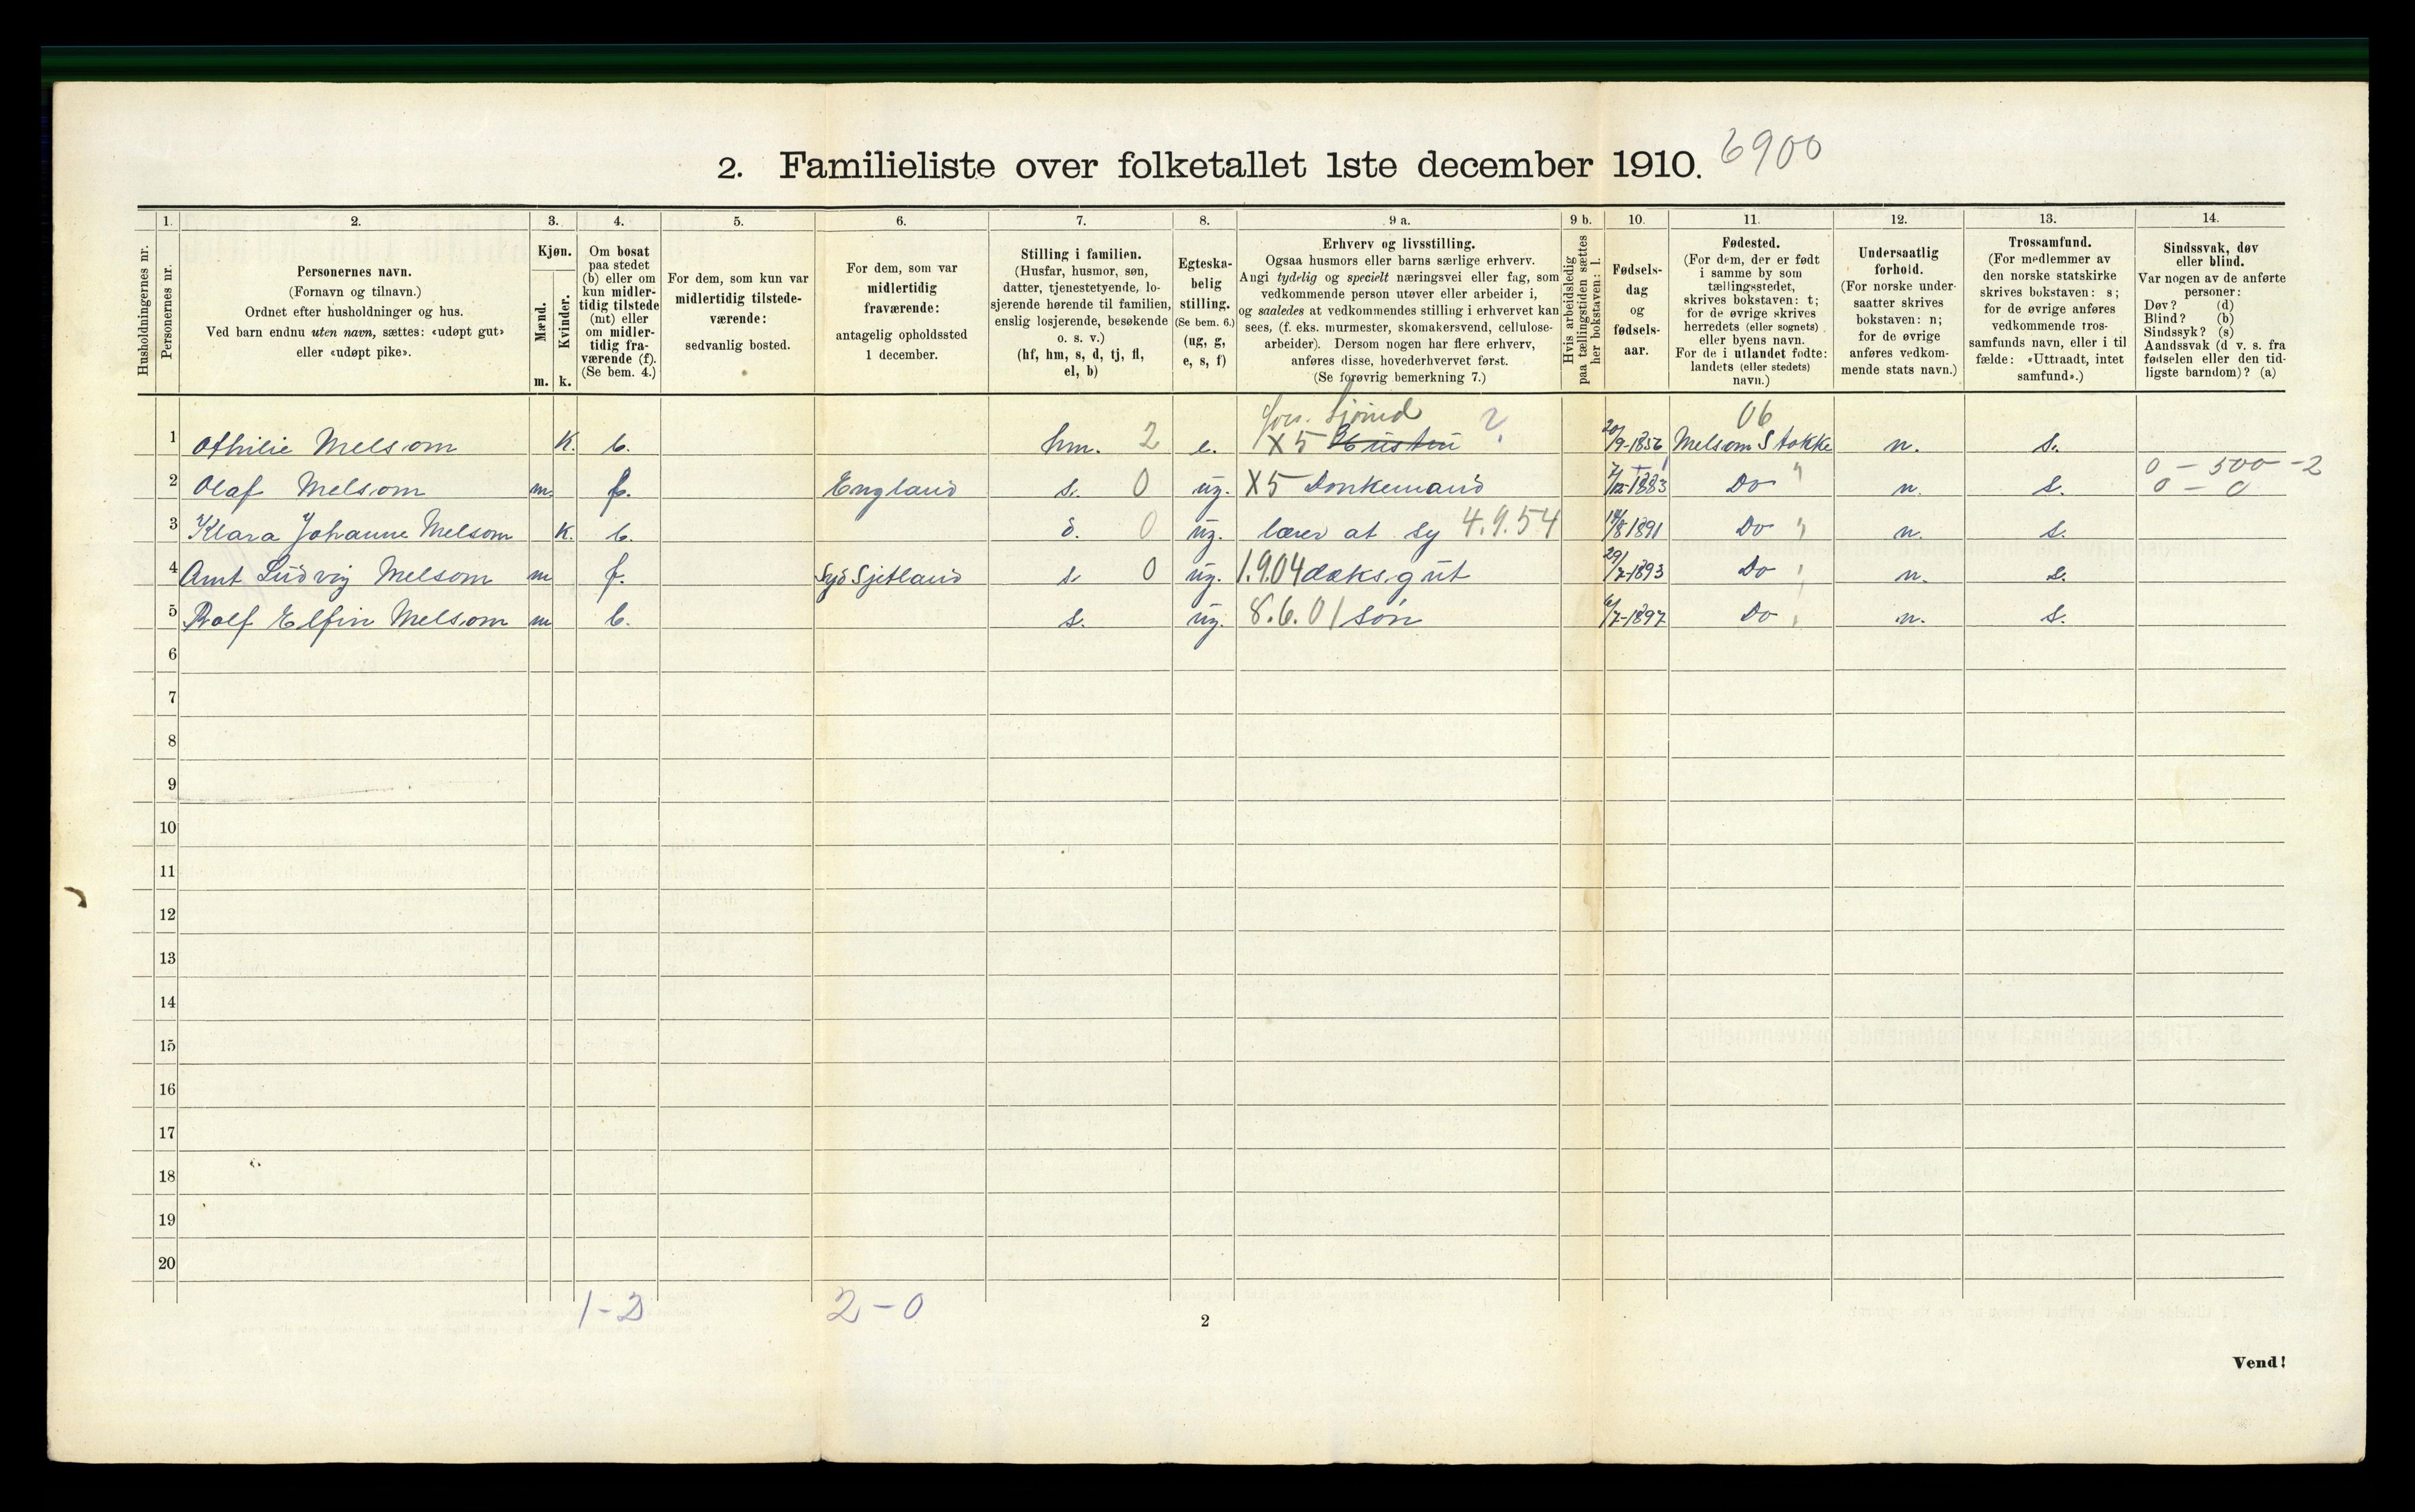 2. Familieliste over folketallet 1ste december 1910. 6900
Husholdningernes nr.
1. Personernes nr.
2. Personernes navn.
(Fornavn og tilnavn.)
Ordnet efter husholdninger og hus.
Ved barn endnu uten navn, sættes: «udøpt gut»
eller «udøpt pike».
3. Kjøn.
Mænd. m.
Kvinder. k.
4. Om bosat
paa stedet
(b) eller om
kun midler-
tidig tilstede
(mt) eller
om midler-
tidig fra-
værende (f).
(Se bem. 4.)
5. For dem, som kun var
midlertidig tilstede-
værende:
sedvanlig bosted.
6. For dem, som var
midlertidig
fraværende:
antagelig opholdssted
1 december.
7. Stilling i familien.
(Husfar, husmor, søn,
datter, tjenestetyende, lo-
sjerende hørende til familien,
enslig losjerende, besøkende
o. s. v.)
(hf, hm, s, d, tj, fl,
el, b)
8. Egteska-
belig
stilling.
(Se bem. 6.)
(ug, g,
e, s, f)
9 a. Erhverv og livsstilling.
Ogsaa husmors eller barns særlige erhverv.
Angi tydelig og specielt næringsvei eller fag, som
vedkommende person utøver eller arbeider i,
og saaledes at vedkommendes stilling i erhvervet kan
sees, (f. eks. murmester, skomakersvend, cellulose-
arbeider). Dersom nogen har flere erhverv,
anføres disse, hovederhvervet først.
(Se forøvrig bemerkning 7.)
9 b. Hvis arbeidsledig
paa tællingstiden sættes
her bokstaven: l.
10. Fødsels-
dag
og
fødsels-
aar.
11. Fødested.
(For dem, der er født
i samme by som
tællingsstedet,
skrives bokstaven: t;
for de øvrige skrives
herredets (eller sognets)
eller byens navn.
For de i utlandet fødte:
landets (eller stedets)
navn.)
12. Undersaatlig
forhold.
(For norske under-
saatter skrives
bokstaven: n;
for de øvrige
anføres vedkom-
mende stats navn.)
13. Trossamfund.
(For medlemmer av
den norske statskirke
skrives bokstaven: s;
for de øvrige anføres
vedkommende tros-
samfunds navn, eller i til
fælde: «Uttraadt, intet
samfund».)
14. Sindssvak, døv
eller blind.
Var nogen av de anførte
personer:
Døv? (d)
Blind? (b)
Sindssyk? (s)
Aandssvak (d v. s. fra
fødselen eller den tid-
ligste barndom)? (a)
06
1 Othilie Melsom K. b. hm. 2 e. X5 ? 20/9-1856 Melsom Stokke n. s.
0 - 500 - 2
2 Olaf Melsom m. f. England s. 0 ug. X5 Donkemand 7/12-1883 Do " n. s. 0 - 0
3 Klara Johanne Melsom K. b. d. 0 ug. lærer at sy 4.9.54 14/8 1891 Do " n. s.
4 Arnt Ludvig Melsom m f. Syd Sjetland s. 0 ug. 1.9.04 dæksgut 29/7-1893 Do " n. s.
5 Rolf Elfin Melsom m b. s. ug. 8.6.01 søn 6/7-1897 Do " n. s.
6
7
8
9
10
11
12
13
14
15
16
17
18
19
20
1-2 2-0
2
Vend!